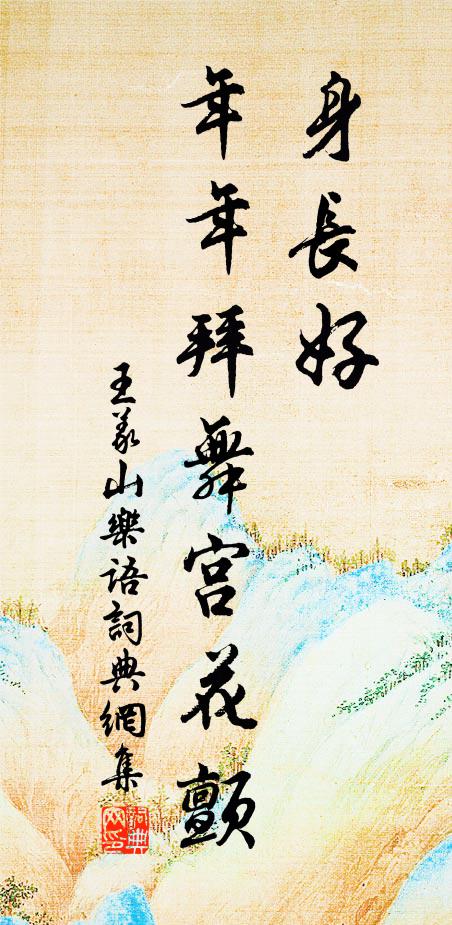 身長好
年年拜舞宮花顫
王義山樂語詞典網集
詞典网印